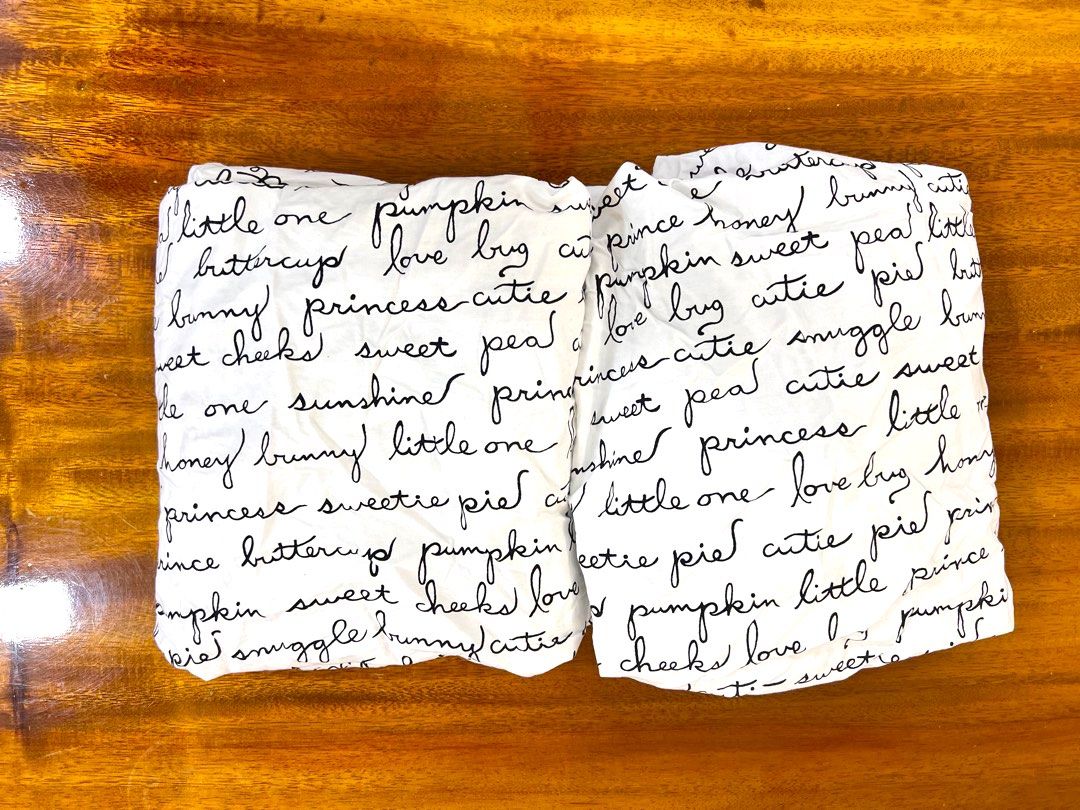 little one pumpkin
buttercup love bug
bunny princess cutie
cheeks sweet pea
one sunshine
honey bunny little one
princess sweetie pie
buttercup pumpkin
sweet cheeks love
pie snuggle bunny cutie
buttercup
prince honey bunny
pumpkin sweet pea little
love bug cutie pie
cutie snuggle
sweet pea cutie sweet
princess little
little one love bug
pie cutie pie
pumpkin little prince
cheeks love